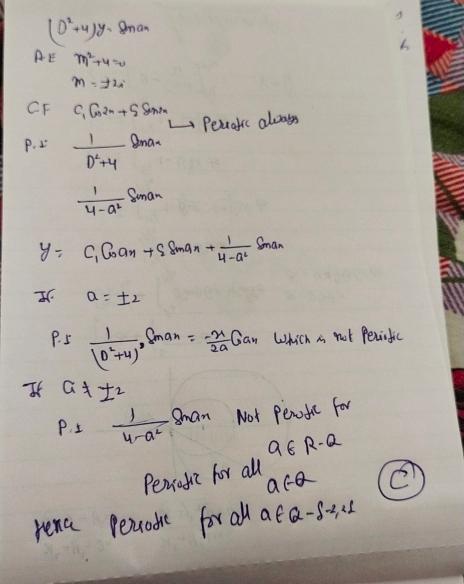 (D²+4)y = Sinax
AE m²+4=0
m = ±2i
CF C₁Cos2x + C₂Sin2x
↳ Periodic always
P.I 1/(D²+4) Sinax
1/(4-a²) Sinax
y = C₁Cosax + C₂Sinax + 1/(4-a²) Sinax
If a = ±2
P.I 1/(D²+4) Sinax = -x/2a Cosax which is not Periodic
If a ≠ ±2
P.I 1/(4-a²) Sinax Not Periodic for
a ∈ R-Q
Periodic for all
a ∈ Q
Hence Periodic for all a ∈ Q-{-2,2}
(C)